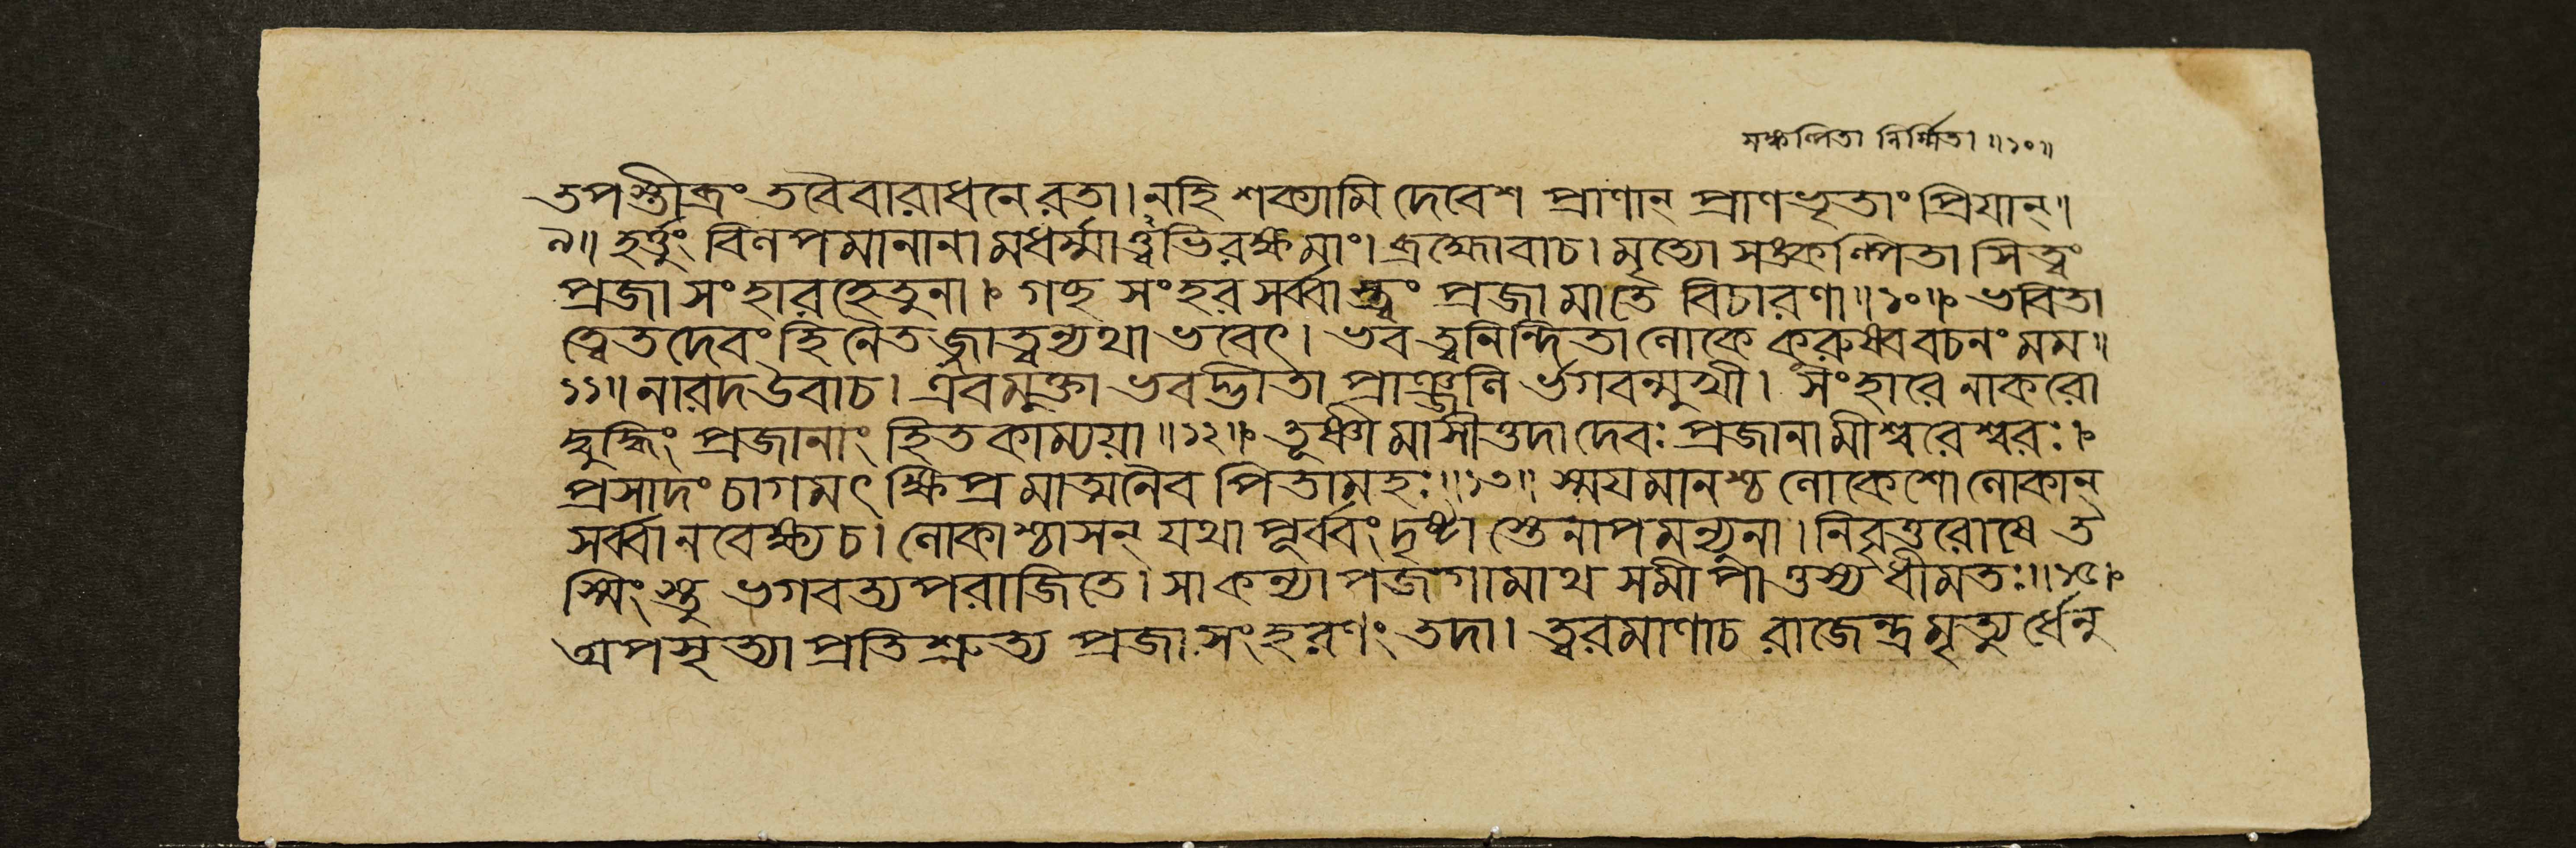 সঙ্কল্পিতা নির্ম্মিতা॥১০॥
তপস্তীব্রং তবৈবারাধনে রতা। নহি শক্যামি দেবেশ প্রাণান্ প্রাণভৃতাং প্রিযান্॥
৯॥ হর্ত্তুং বিলপমানানামধর্ম্মাত্ত্বভিরক্ষমাং। ব্রহ্মোবাচ। মৃত্যো সঙ্কল্পিতা সি ত্বং
প্রজাসংহারহেতুনা। গচ্ছ সংহর সর্ব্বাস্ত্বং প্রজামাতে বিচারণা॥১০॥ ভবিতা
ত্বেতদেবং হি নৈতজ্জাত্বন্যথা ভবেৎ। ভবত্বনিন্দিতা লোকে কুরুষ্ব বচনং মম॥
১১॥ নারদ উবাচ। এবমুক্তা ভবদ্ভীতা প্রাঞ্জলি র্ভগবন্মুখী। সংহারে নাকরো
দ্বুদ্ধিং প্রজানাং হিতকাম্যয়া॥১২॥ তূষ্ণীমাসীত্তদা দেবঃ প্রজানামীশ্বরেশ্বরঃ।
প্রসাদং চাগমৎ ক্ষিপ্রমাত্মনৈব পিতামহঃ॥১৩॥ স্ময়মানশ্চ লোকেশো লোকান্
সর্ব্বানবেক্ষ্য চ। লোকাশ্চাসন্ যথা পূর্ব্বং দৃষ্টাস্তেনাপমন্যুনা। নিবৃত্তরোষে ত
স্মিংস্তু ভগবত্যপরাজিতে। সা কন্যাপজগামাথ সমীপাত্তস্য ধীমতঃ॥১৫।
অপসৃত্যাপ্রতিশ্রুত্য প্রজাসংহরণং তদা। ত্বরমাণা চ রাজেন্দ্র মৃত্যু র্ধেনু